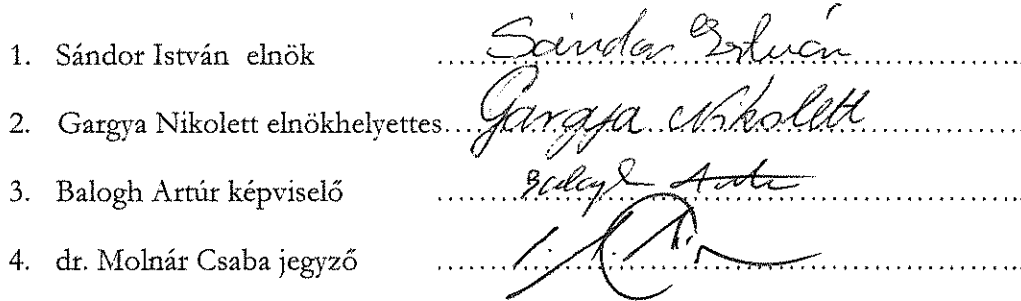 1. Sándor István elnök ........ Sándor István
2. Gargya Nikolett elnökhelyettes... Gargya Nikolett
3. Balogh Artúr képviselő ........ Balogh Artúr
4. dr. Molnár Csaba jegyző ........